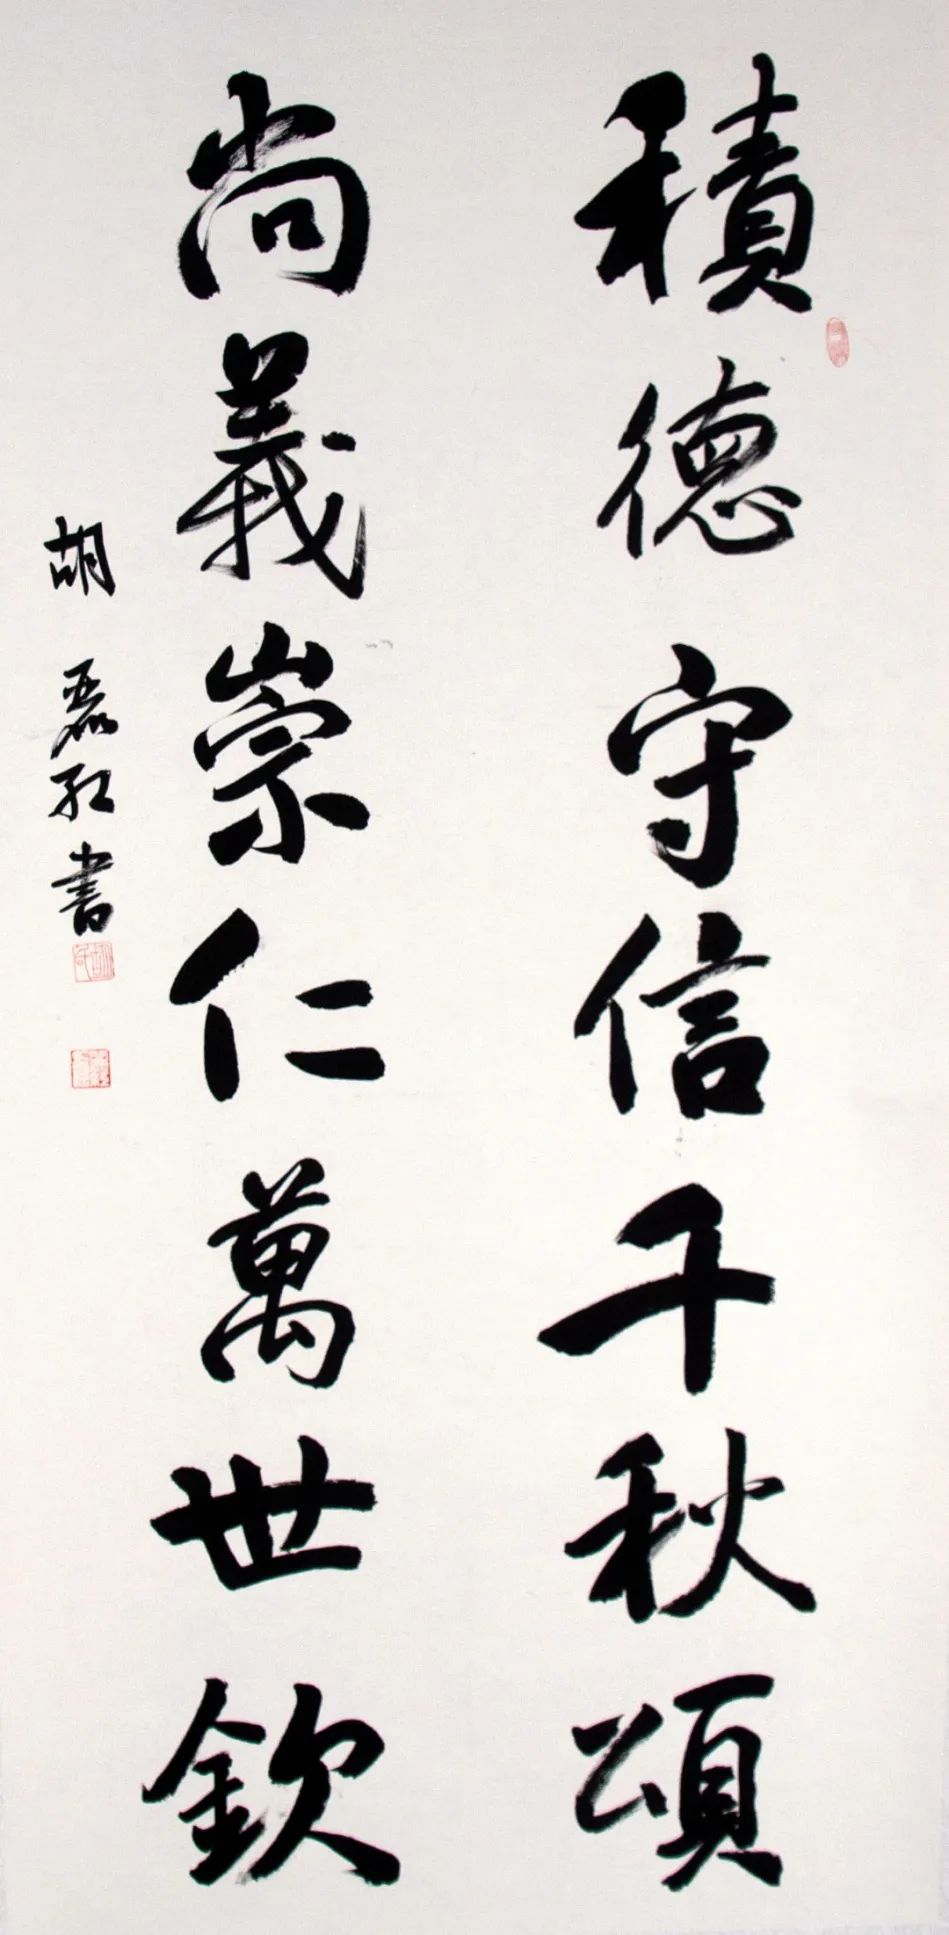 積德守信千秋頌
尚義崇仁萬世欽
胡磊紅書